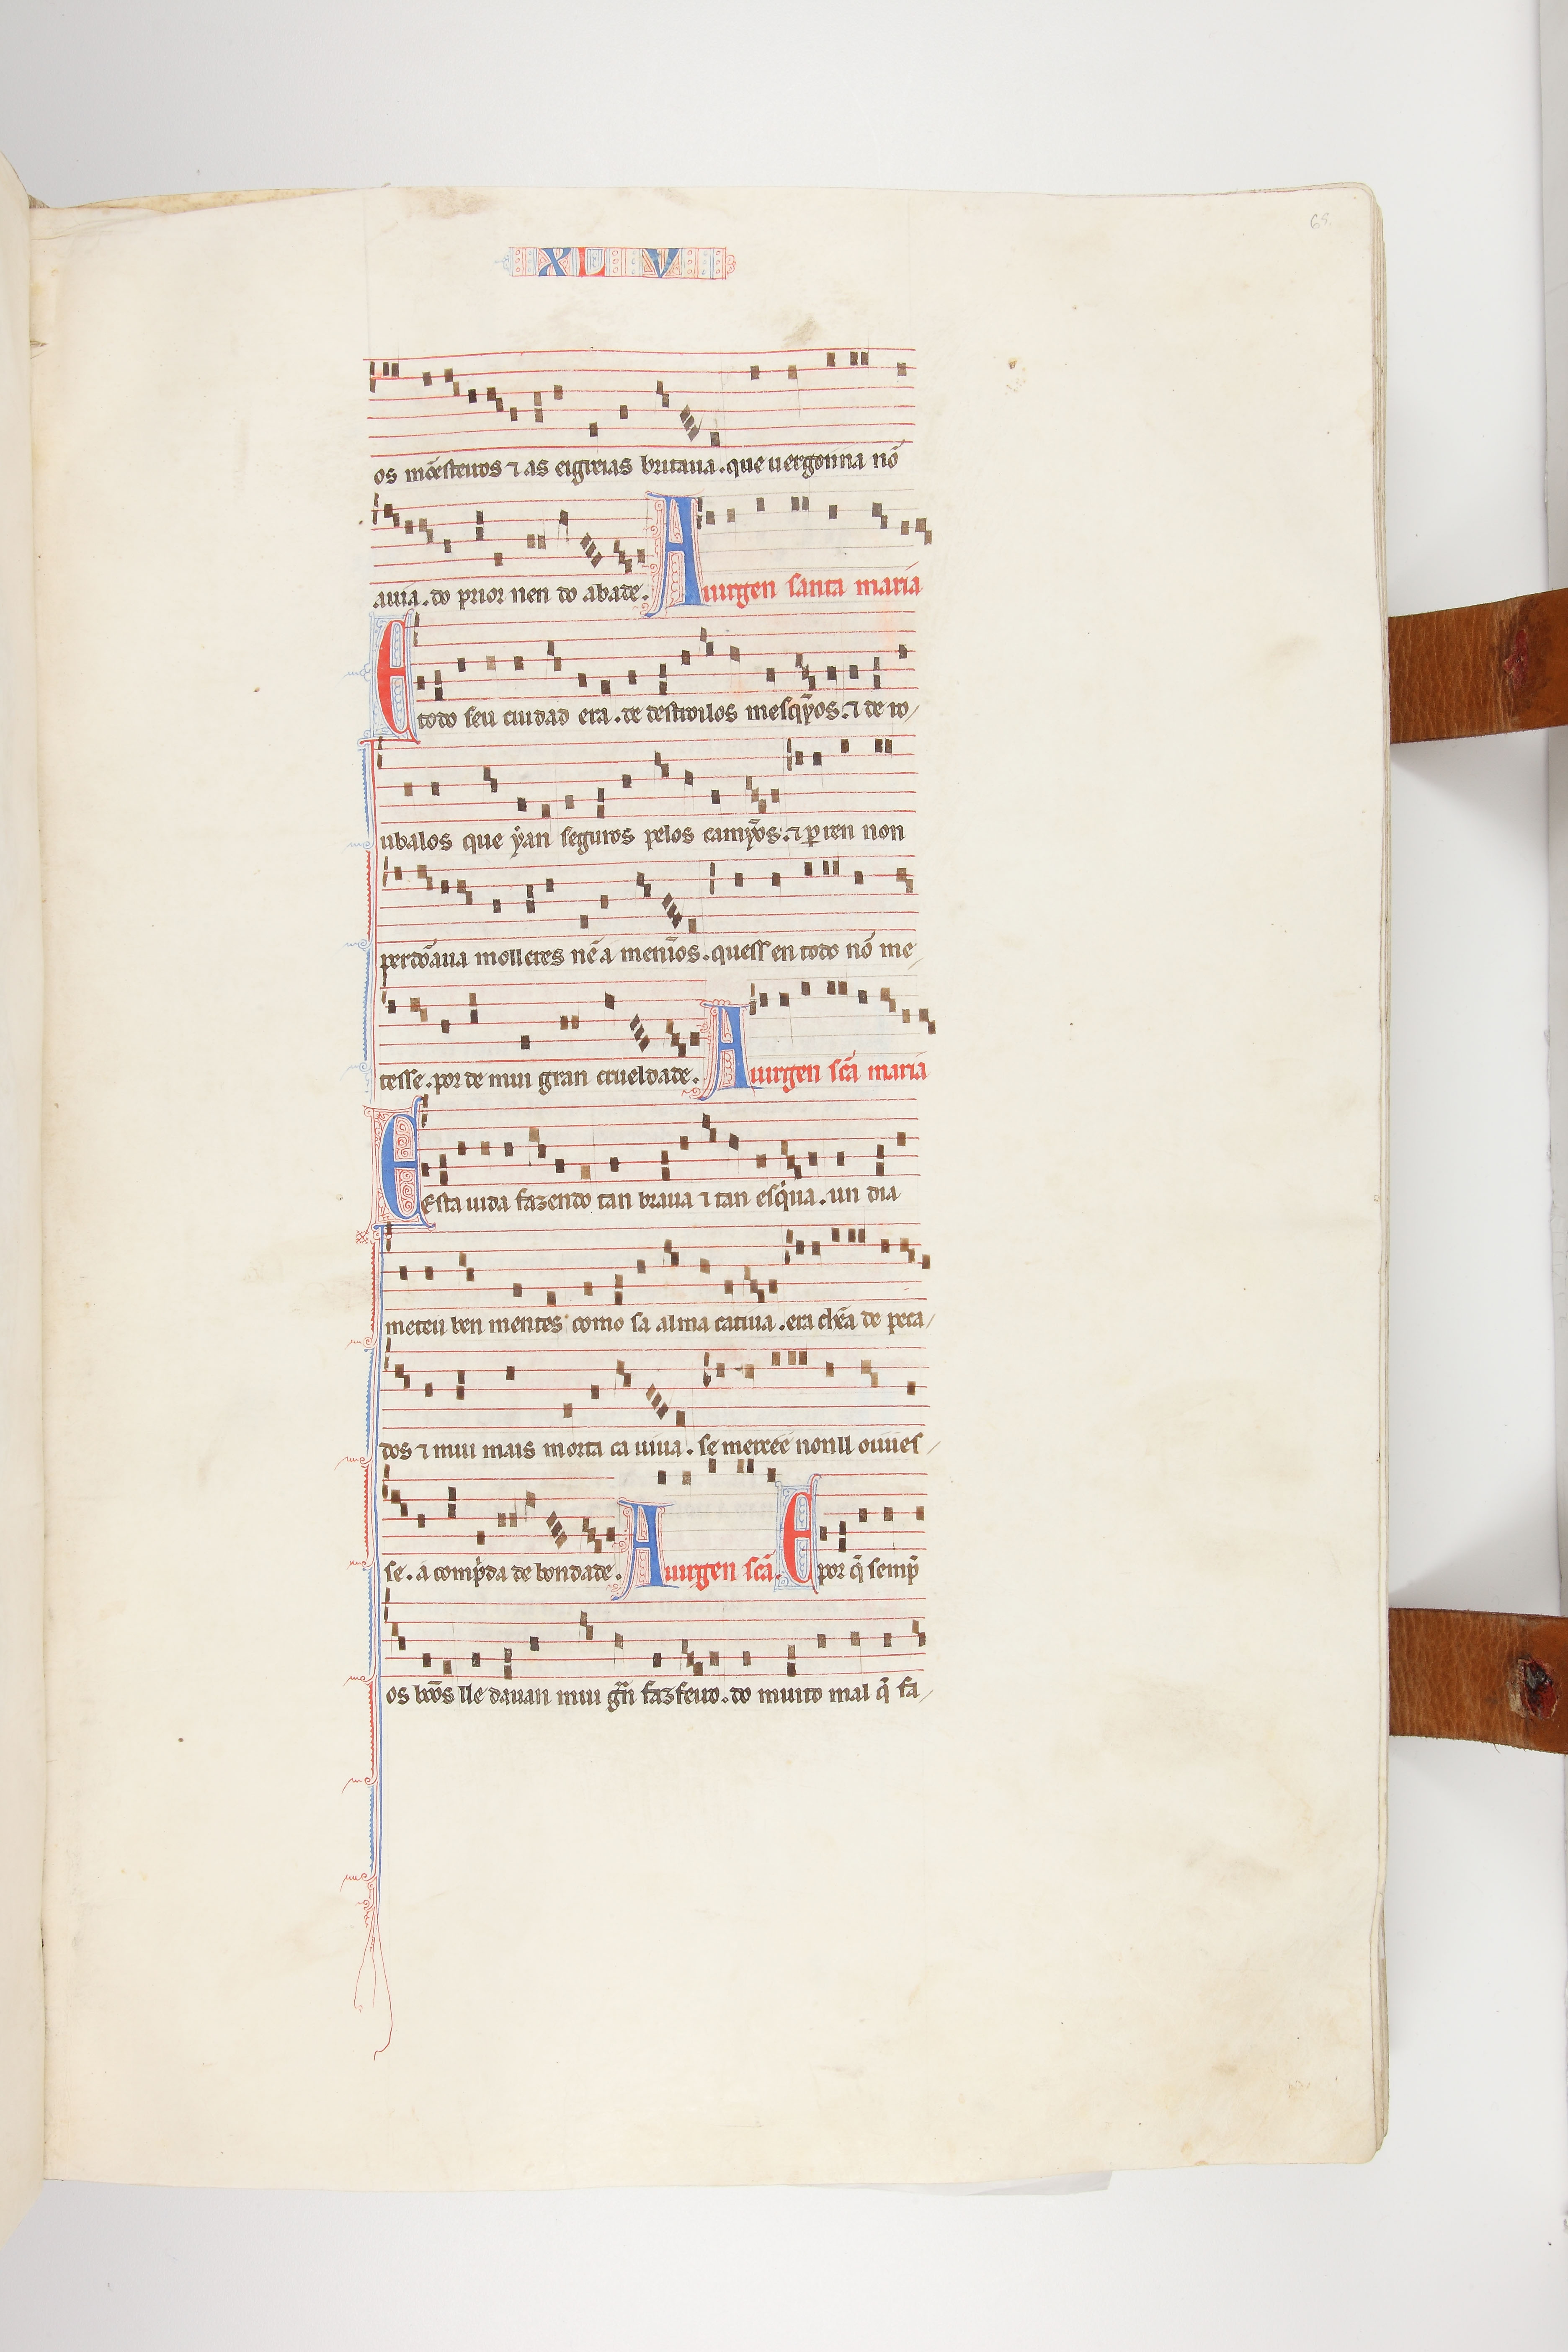 XLV
65
os mõesteiros ⁊ as eigreias britaua. que uergonna nõ
auia. do prior nen do abade. A uirgen santa maria
E todo seu cuidad era. de destroilos mesqỹos. ⁊ de ro/
ubalos que ẏan seguros pelos camỹos. ⁊ per ren non
perdõaua molleres nẽ a menĩos. quess en todo nõ me/
tesse. por de mui gran crueldade. A uirgen scã maria
E Esta uida fazendo tan braua ⁊ tan esq̇ua. un dia
meteu ben mentes como sa alma catiua. era chẽa de peca/
dos ⁊ mui mais morta ca uiua. se mercee nonll ouues/
se. a comp̃da de bondade. A uirgen scã. E por q̃ semp̃
os bõos lle dauan mui grã fazfeiro. do muito mal q̃ fa/